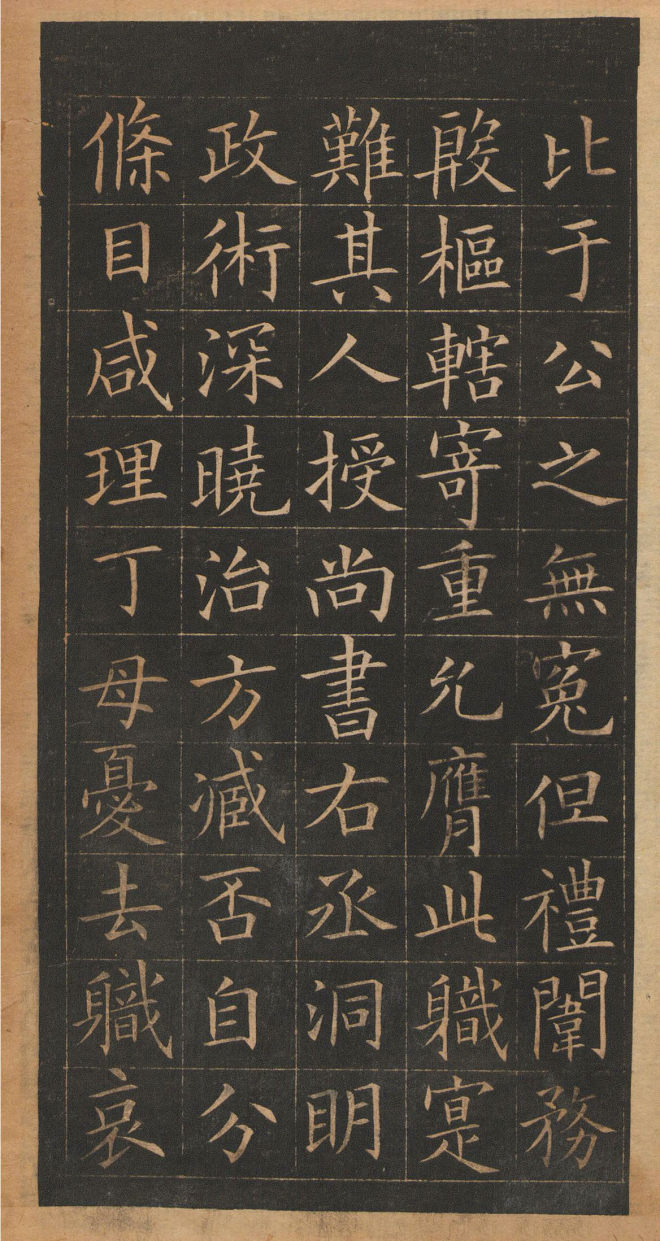 比于公之無寃但禮闈務
殷樞轄寄重允膺此軄寔
難其人授尚書右丞洞眀
政術深曉治方臧否自分
條目咸理丁母憂去軄哀